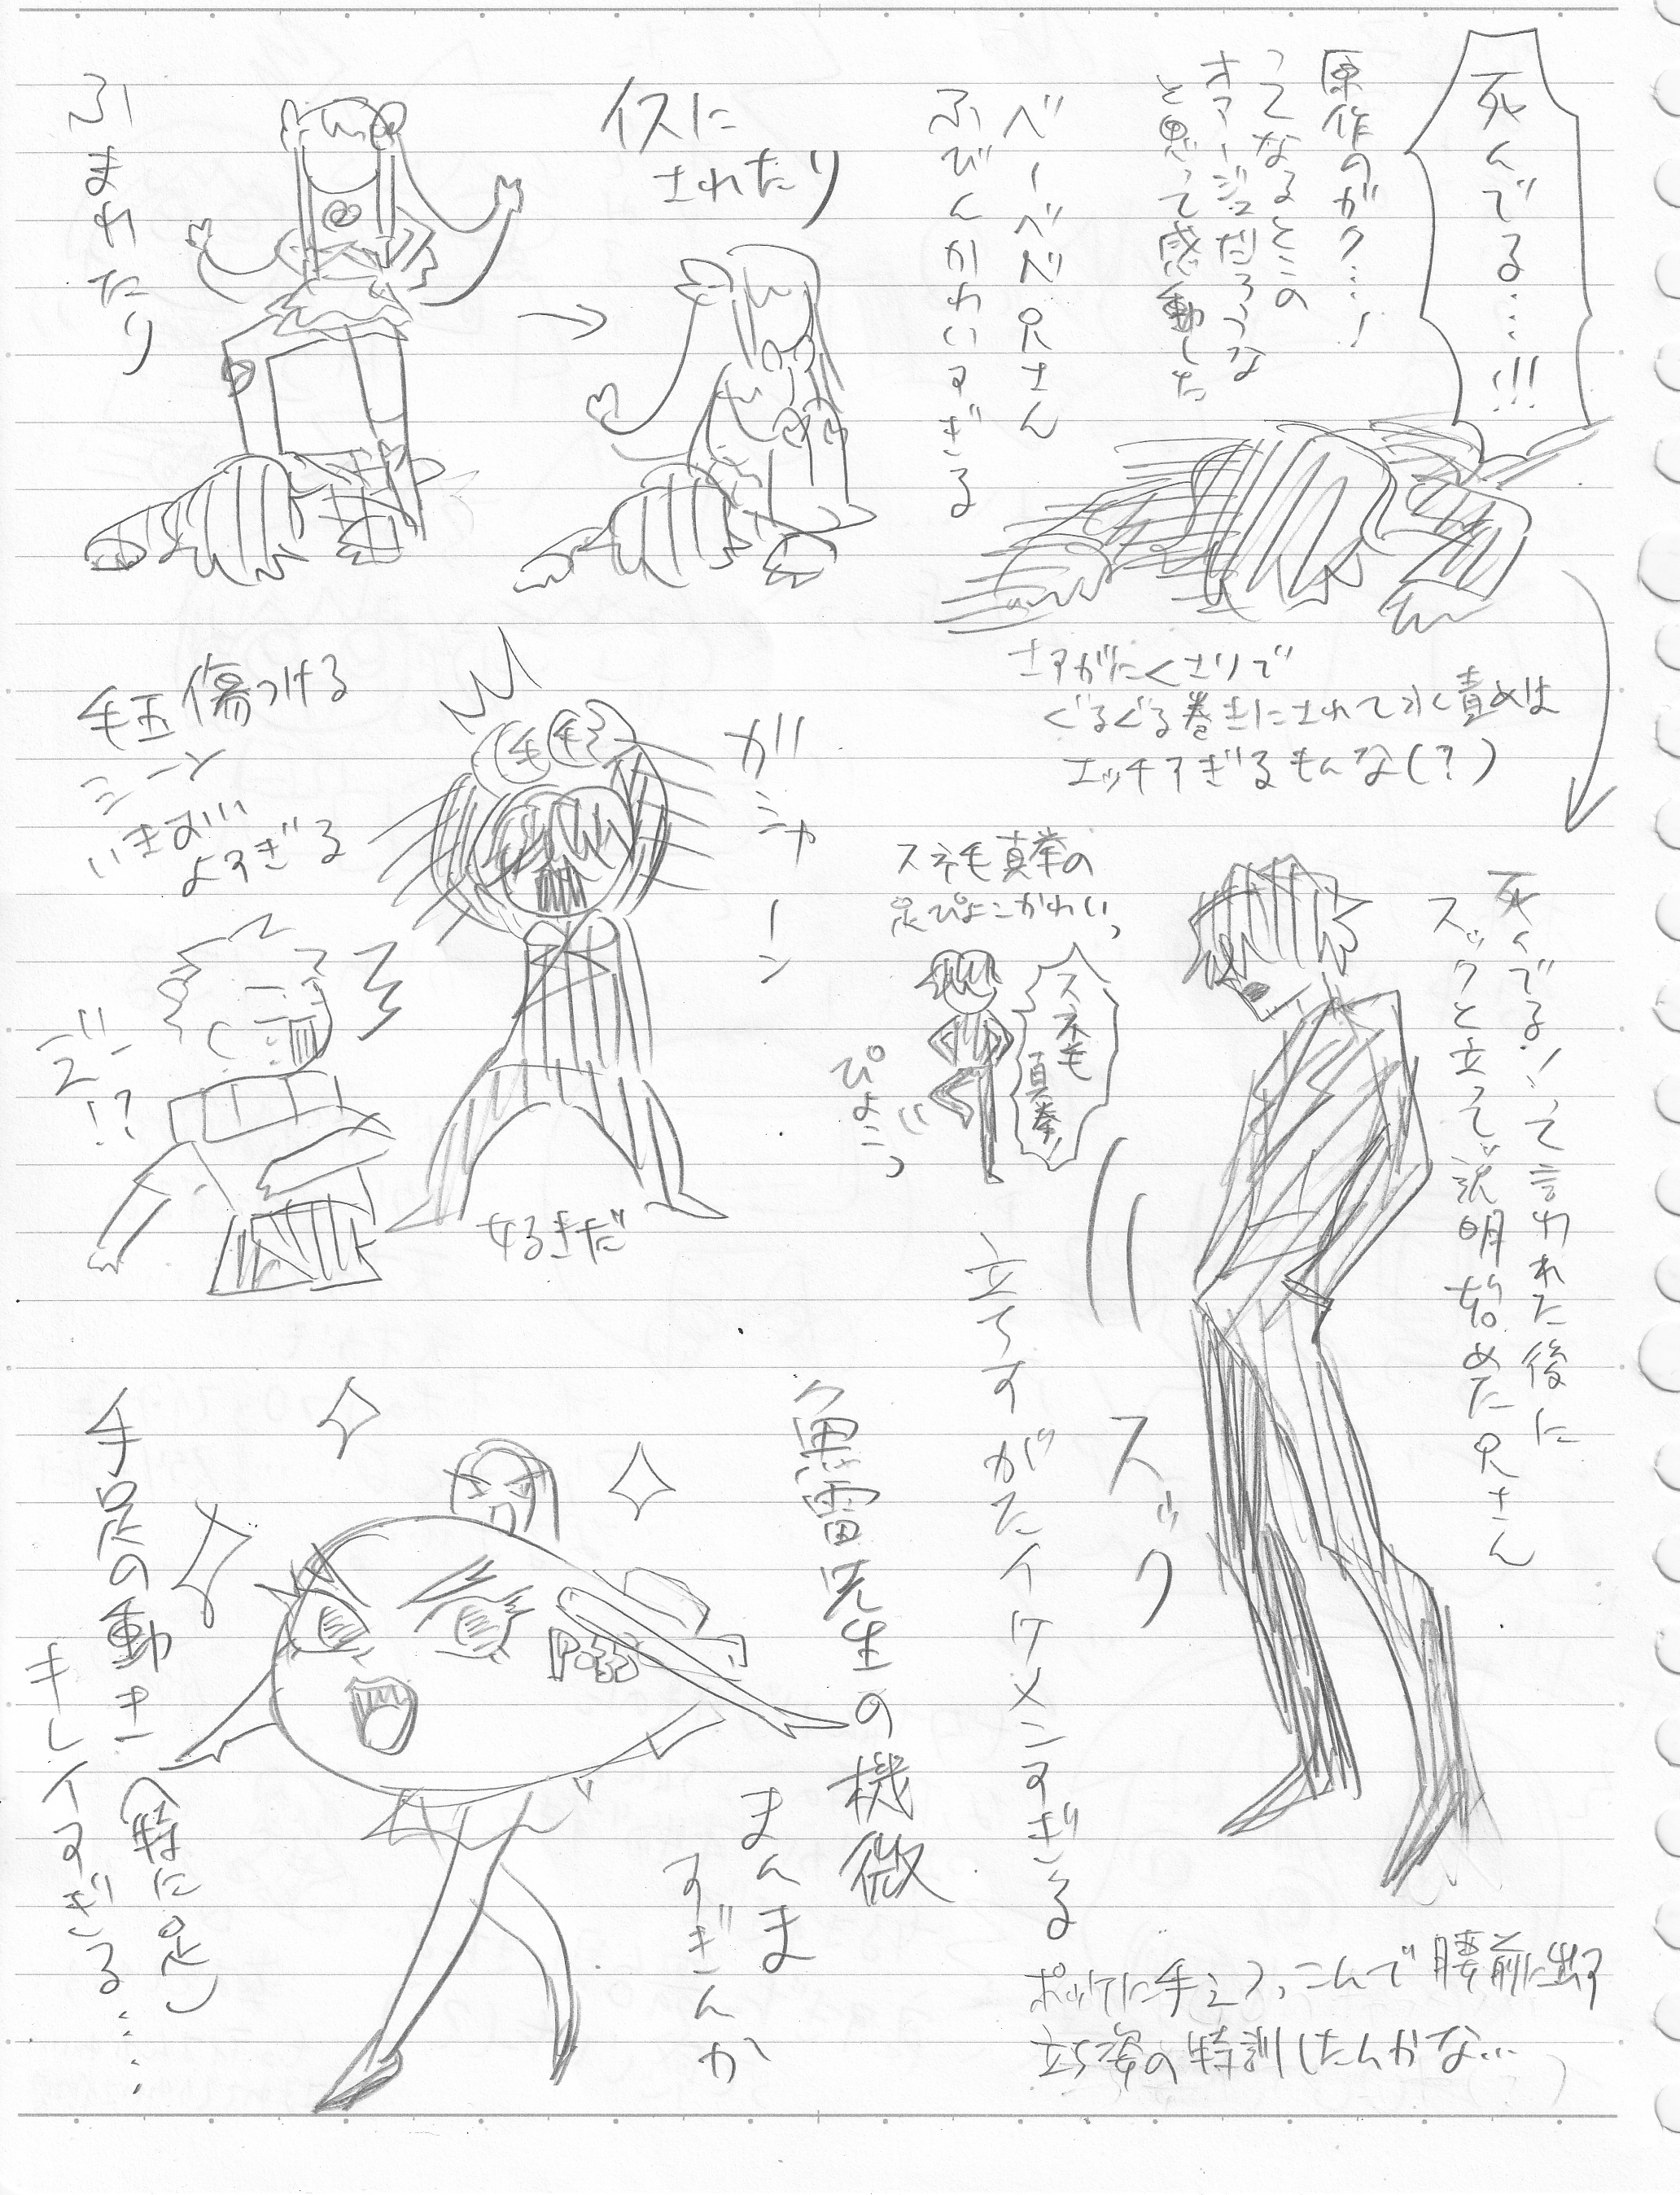 死んでる…!!!
原作のガク…!
ってなるとこの
オマージュだろうな
と思って感動した
ベーベベベ兄さん
ふびんかわいすぎる
イスに
されたり
ふまれたり
さすがにくさりで
ぐるぐる巻きにされて水責めは
エッチすぎるもんな(?)
死んでる!って言われた後に
スックと立って説明始めた兄さん
スック
立ちすがたイケメンすぎる
ポッケに手つっこんで腰前に出す
立ち姿の特訓したんかな…
スネ毛真拳の
足ぴょこかわいい
スネ毛
真拳!
ぴょこっ
毛玉傷つける
シーン
いきおい
よすぎる
毛毛
ガシャーン
ビュ!?
魚雷先生の機微
まんま
すぎんか
手足の動き(特に足)
キレイすぎる……